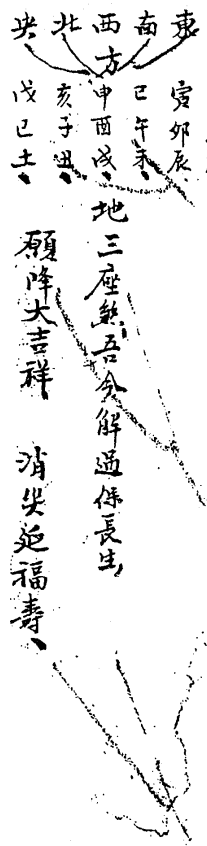 東南西北央
方
寅卯辰、
巳午未、
申酉戌、
亥子丑、
戊己土、
地三座煞、吾今解過保長生、
願降大吉祥、消災延福壽、